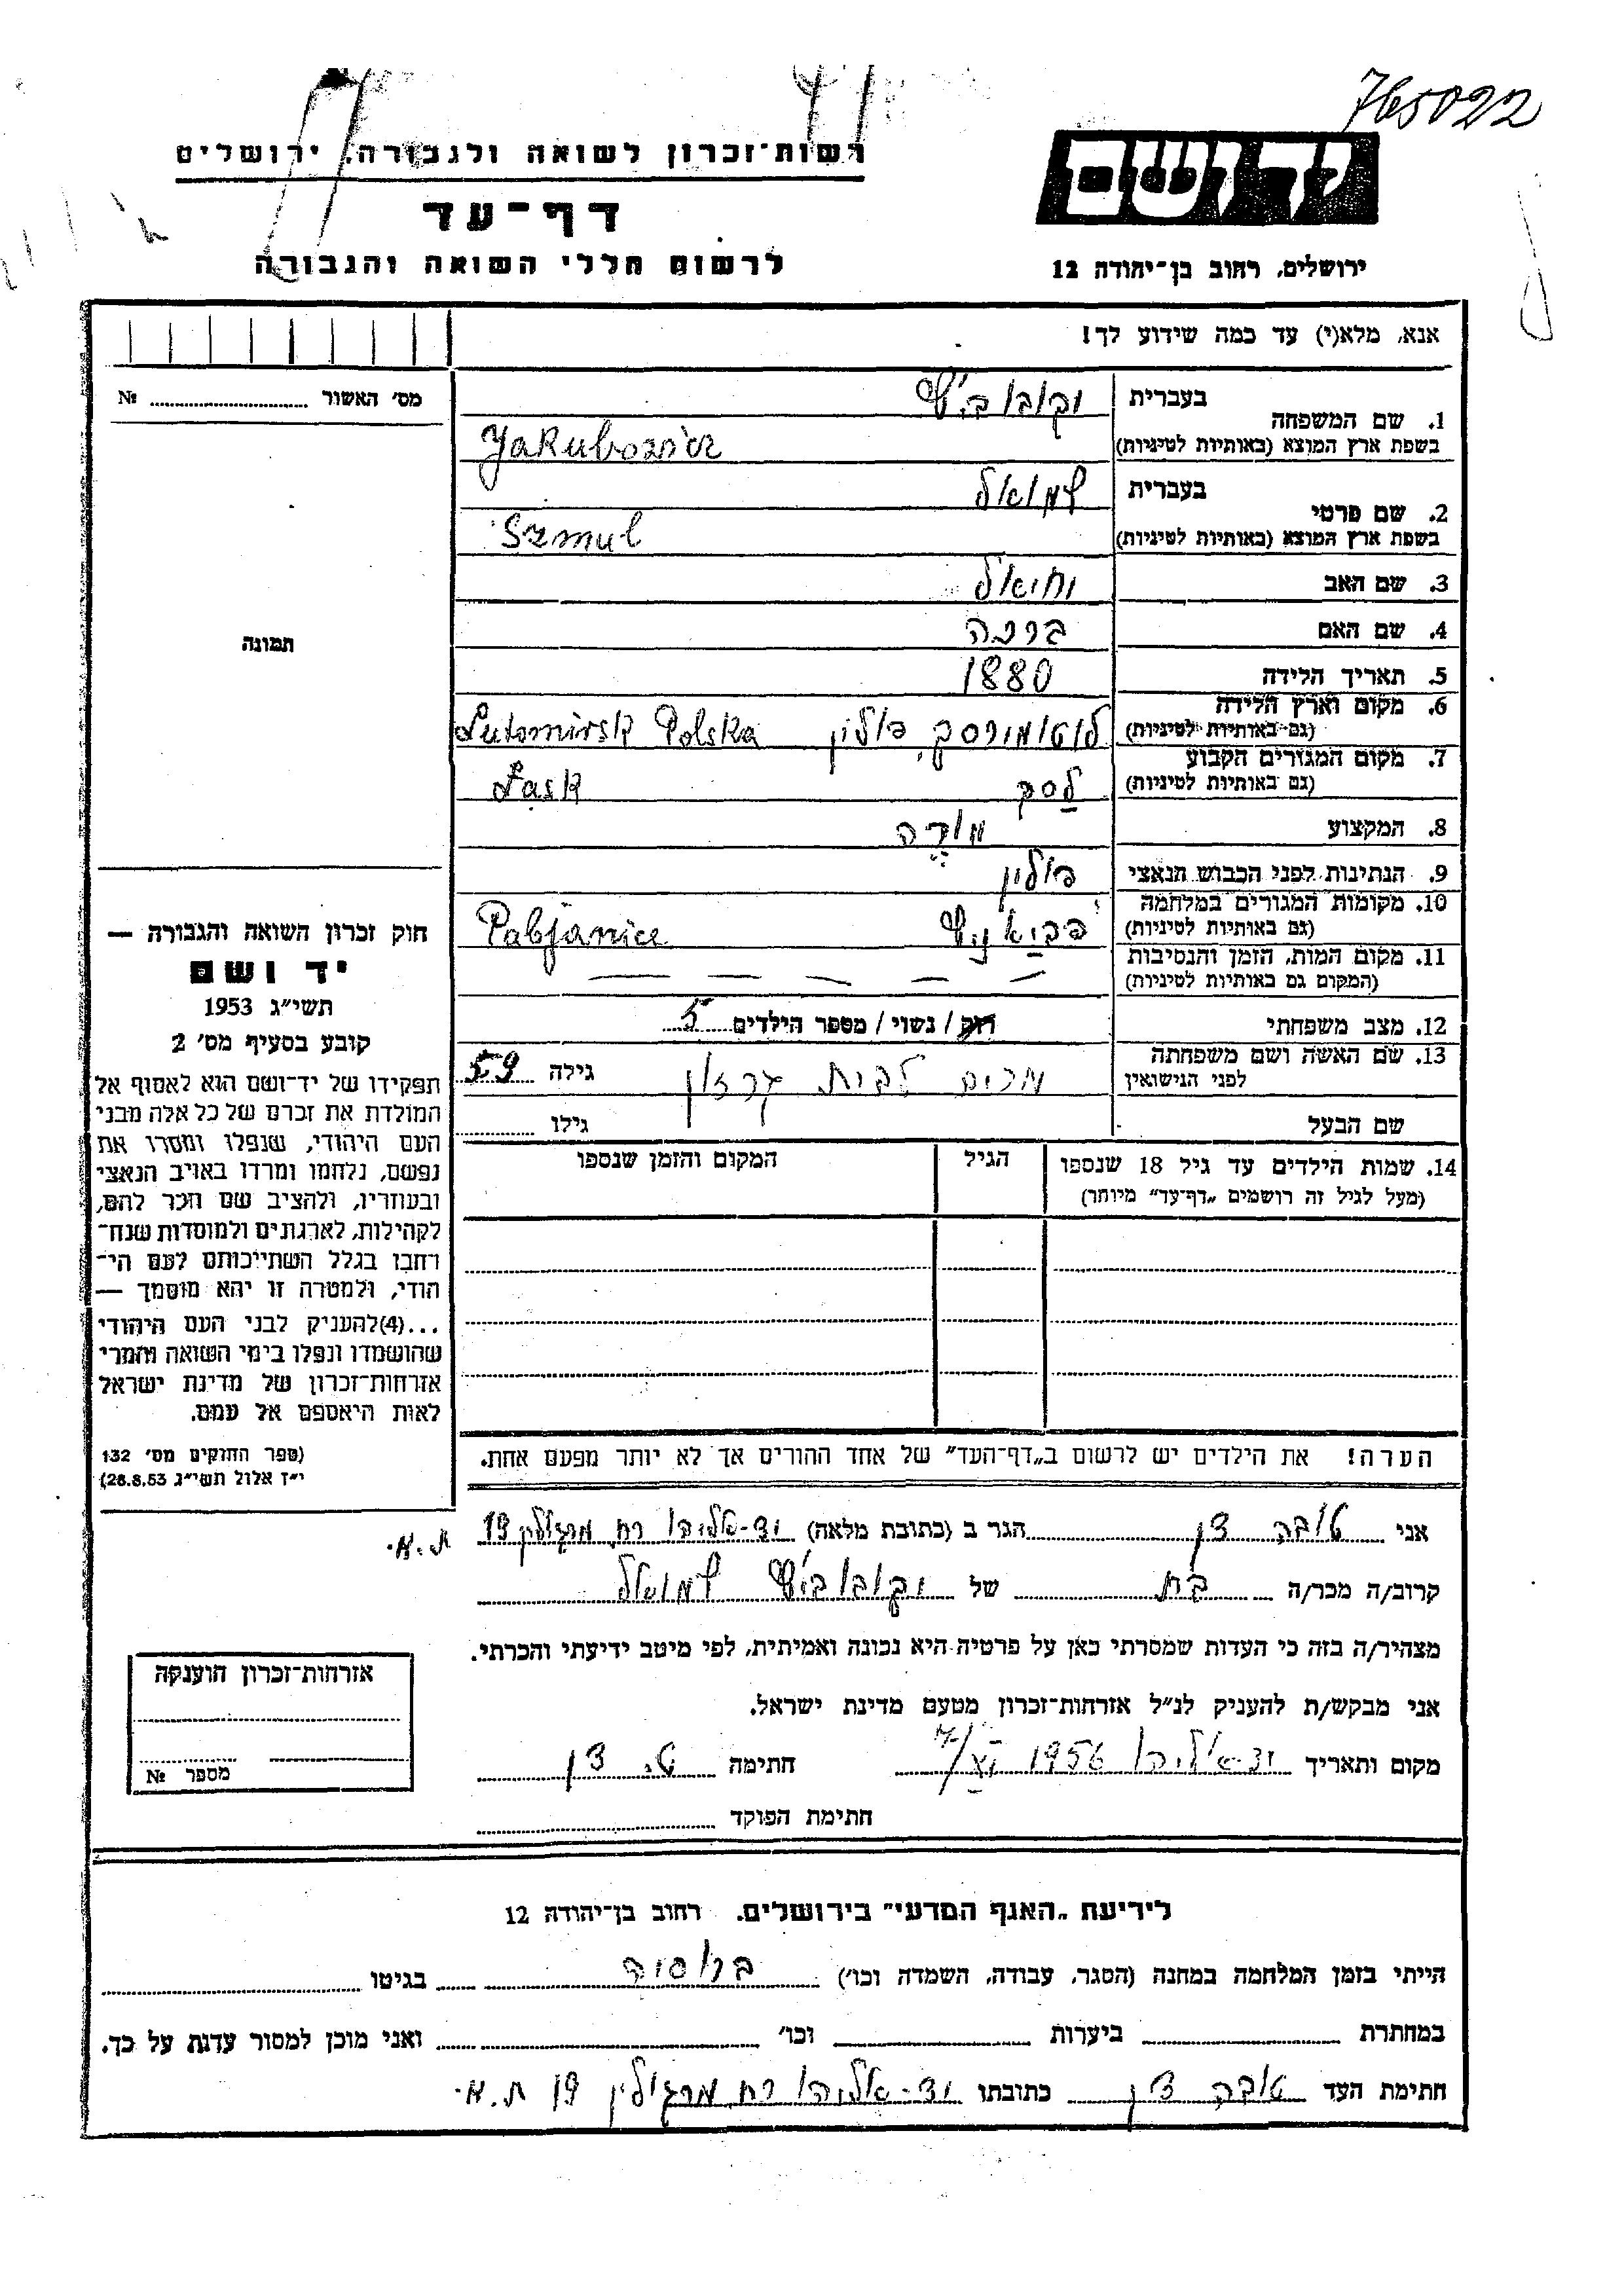 765022
רשות־זכרון לשואה ולגבורה, ירושלים
דף־עד
לרשום חללי השואה והגבורה
יד ושם
ירושלים, רחוב בן־יהודה 12
אנא, מלא(י) עד כמה שידוע לך!
1. שם המשפחה
בעברית יקובוביץ
בשפת ארץ המוצא (באותיות לטיניות) Yakubowicz
2. שם פרטי
בעברית שמואל
בשפת ארץ המוצא (באותיות לטיניות) Szmul
3. שם האב יחיאל
4. שם האם ברכה
5. תאריך הלידה 1880
6. מקום וארץ הלידה (גם באותיות לטיניות) לוטומירסק, פולין Lutomirsk Polska
7. מקום המגורים הקבוע (גם באותיות לטיניות) לסק Łask
8. המקצוע מורה
9. הנתינות לפני הכבוש הנאצי פולין
10. מקומות המגורים במלחמה (גם באותיות לטיניות) פביאניץ Pabjanice
11. מקום המות, הזמן והנסיבות (המקום גם באותיות לטיניות) — — — — —
12. מצב משפחתי רוק / נשוי / מספר הילדים 5
13. שם האשה ושם משפחתה לפני הנישואין מרים לבית גילה 59
שם הבעל גילו
14. שמות הילדים עד גיל 18 שנספו (מעל לגיל זה רושמים „דף־עד” מיוחד)
הגיל
המקום והזמן שנספו
הערה! את הילדים יש לרשום ב„דף־העד” של אחד ההורים אך לא יותר מפעם אחת.
מס' האשור №
תמונה
חוק זכרון השואה והגבורה —
יד ושם
תשי״ג 1953
קובע בסעיף מס' 2
תפקידו של יד־ושם הוא לאסוף אל
המולדת את זכרם של כל אלה מבני
העם היהודי, שנפלו ומסרו את
נפשם, נלחמו ומרדו באויב הנאצי
ובעוזריו, ולהציב שם וזכר להם,
לקהילות, לארגונים ולמוסדות שנח־
רבו בגלל השתייכותם לעם הי־
הודי, ולמטרה זו יהא מוסמך —
...(4)להעניק לבני העם היהודי
שהושמדו ונפלו בימי השואה והמרי
אזרחות־זכרון של מדינת ישראל
לאות היאספם אל עמם.
(ספר החוקים מס' 132
י״ז אלול תשי״ג 28.8.53)
אני טובה דן הגר ב (כתובת מלאה) יד־אליהו רח מרגולין 19 ת.א.
קרוב/ה מכר/ה בת של יקובוביץ שמואל
מצהיר/ה בזה כי העדות שמסרתי כאן על פרטיה היא נכונה ואמיתית, לפי מיטב ידיעתי והכרתי.
אני מבקש/ת להעניק לנ״ל אזרחות־זכרון מטעם מדינת ישראל.
מקום ותאריך יד־אליהו 1956 חתימה ט. דן
חתימת הפוקד
אזרחות־זכרון הוענקה
מספר №
לידיעת „האגף המדעי” בירושלים. רחוב בן־יהודה 12
הייתי בזמן המלחמה במחנה (הסגר, עבודה, השמדה וכו׳) ברוסיה בגיטו
במחתרת ביערות וכו׳ ואני מוכן למסור עדות על כך.
חתימת העד טובה דן כתובתו יד־אליהו רח מרגולין 19 ת.א.